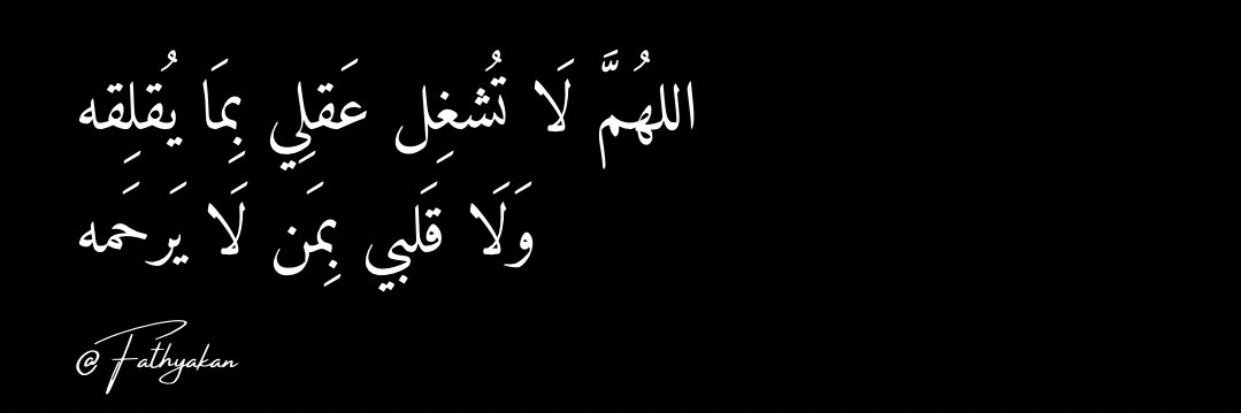 اللهُمَّ لَا تُشغِل عَقلِي بِمَا يُقلِقه
وَلَا قَلبي بِمَن لَا يَرحَمه
@Fathyakan